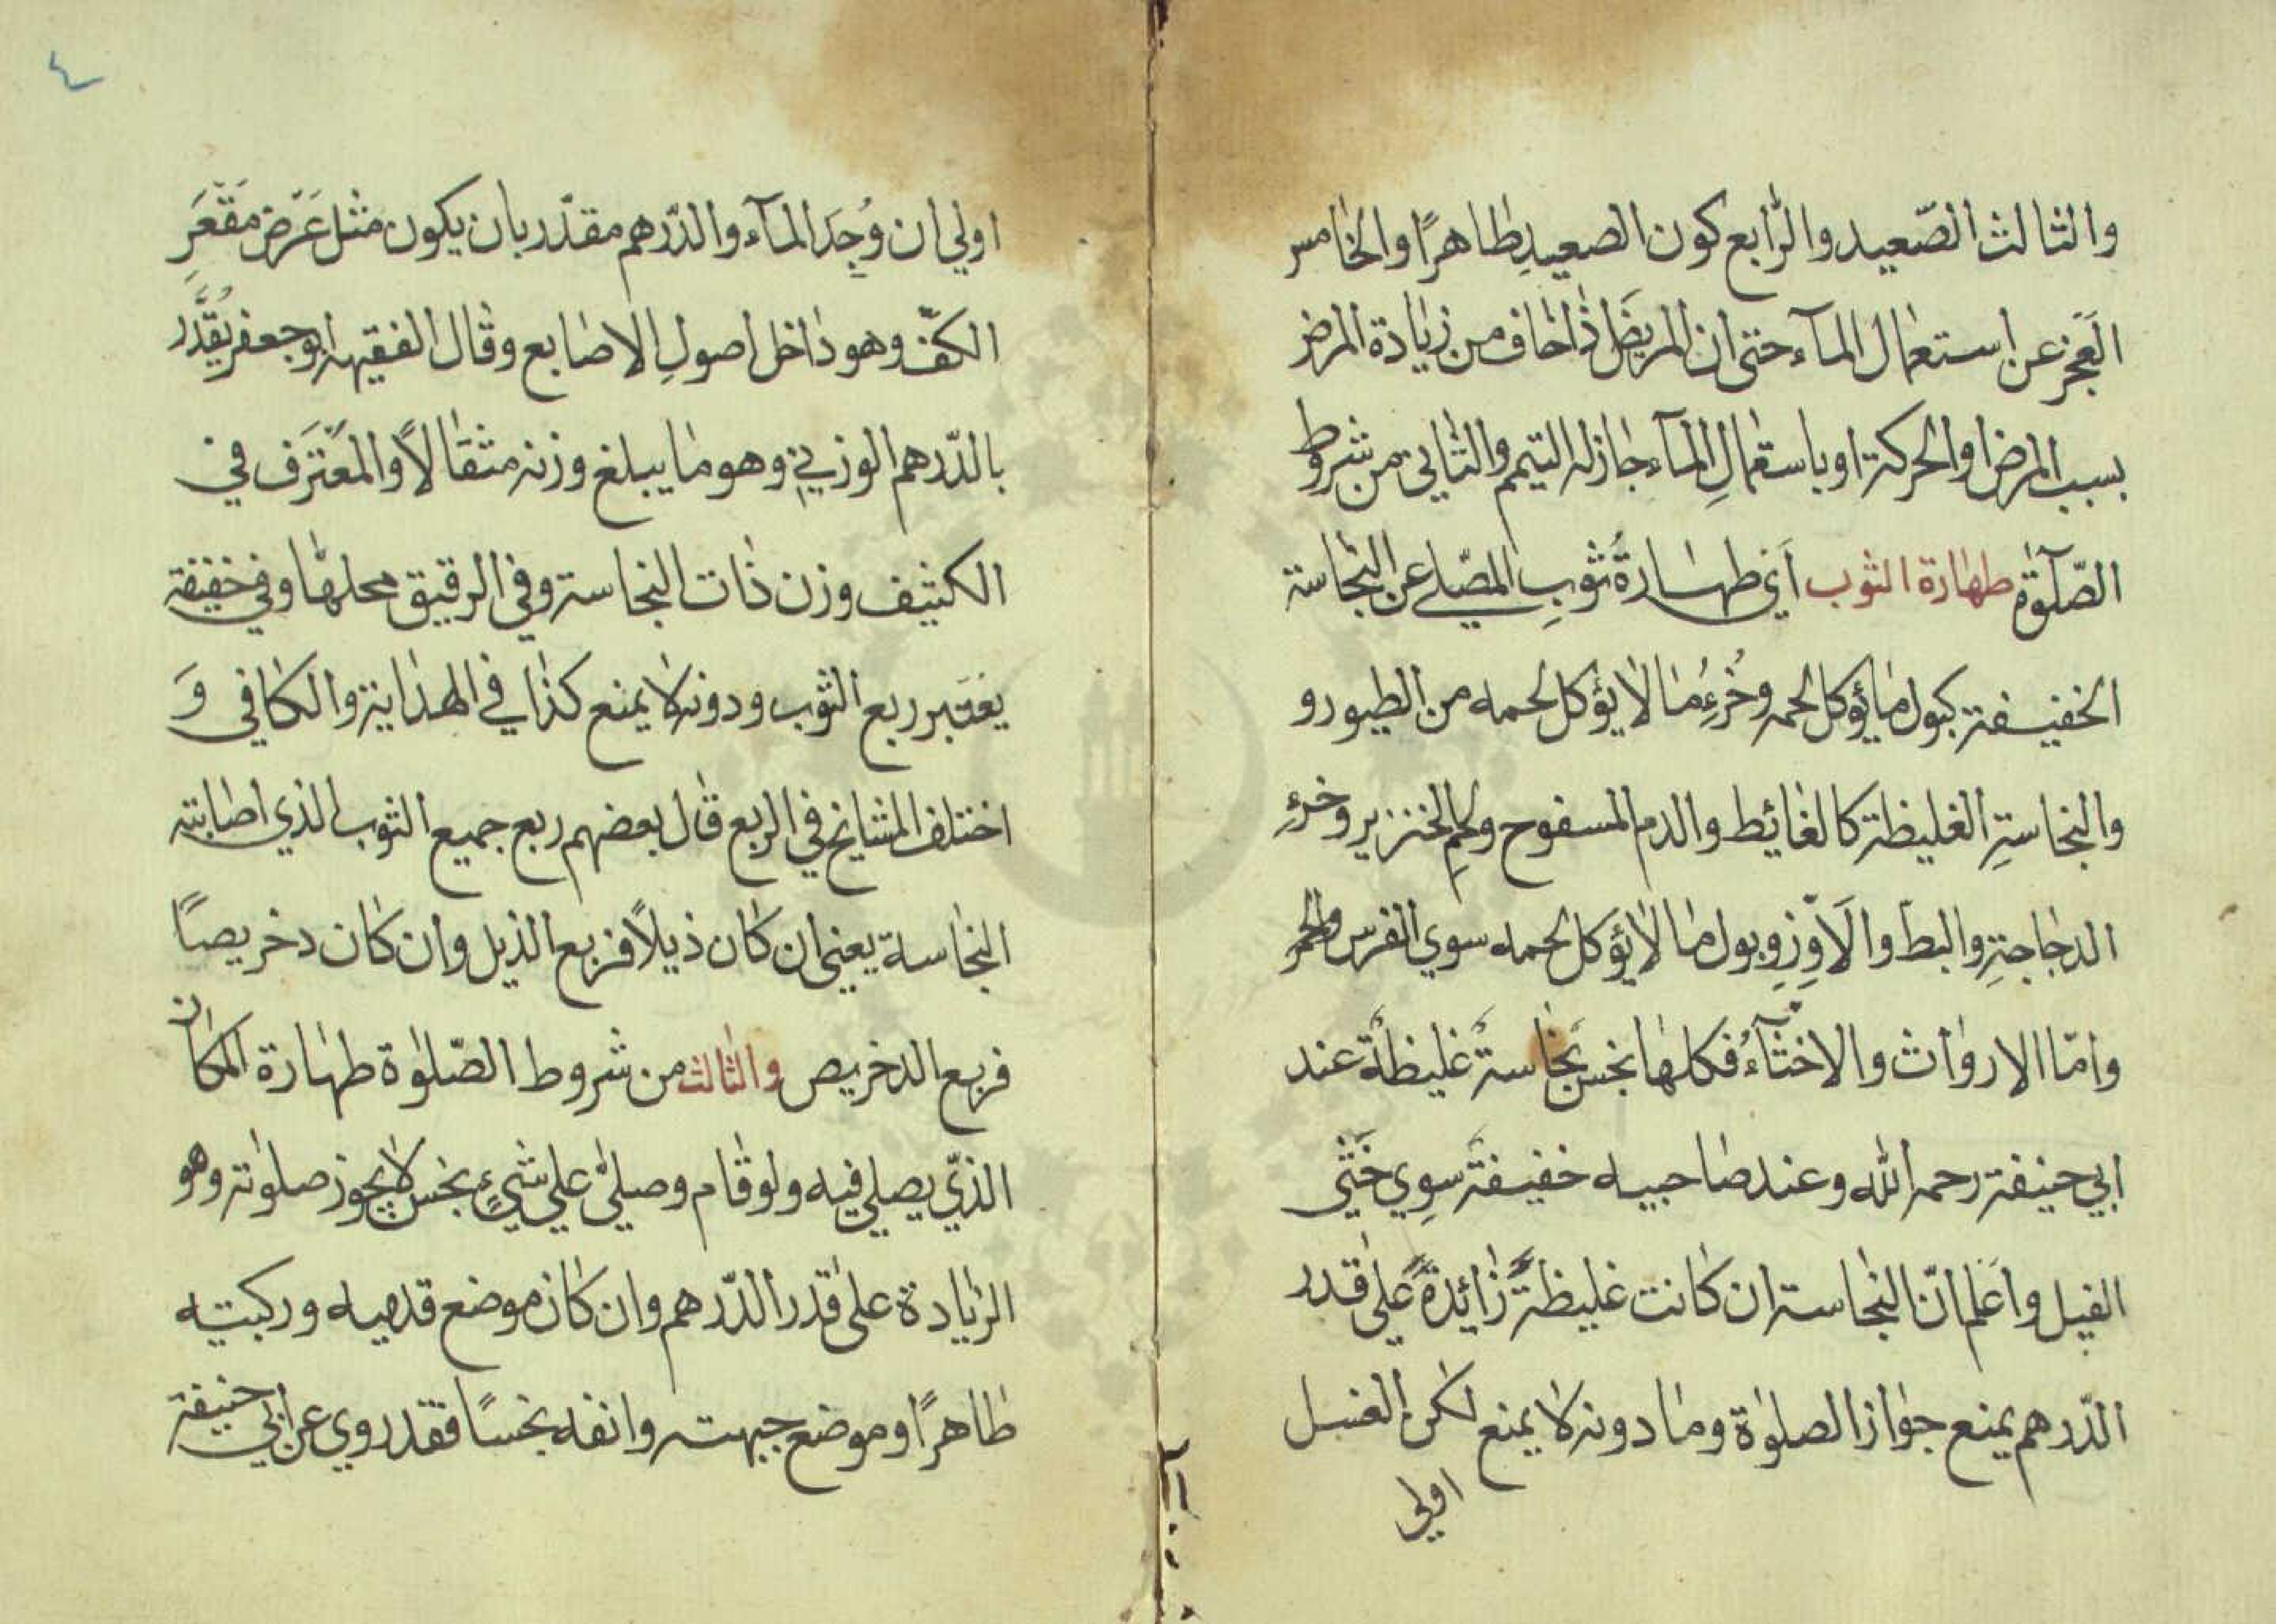 والثالث الصّعيد والرّابع كون الصعيدِ طاهرًا والخامس
العَجز عن استعمال المآء حتى ان المريضَ اذا خاف من زيادة المرض
بسبب المرض او الحركة او باستعمالِ المآء جاز له التيمم والثاني من شروط
الصّلوٰة طهارة الثوب اَي طهارةُ ثوبِ المصلّي عن النجاسة
الخفيفة كبول ما يؤكل لحمه وخُرءِ ما لا يؤكل لحمه من الطيور و
والنجاسةِ الغليظة كالغائط والدم المسفوح ولحمِ الخنزير وخرءِ
الدجاجةِ والبطّ والاَوّزِ وبولِ ما لا يؤكل لحمه سوي الفرس
وامّا الارواث والاخثآءُ فكلها نجس نجاسةً غليظةً عند
ابي حنيفة رحمه الله وعند صاحبيه خفيفةً سِوي خَثَي
الفيل واعلم انّ النجاسة ان كانت غليظةً زائدةً على قدر
الدّرهم يمنع جواز الصلوٰة وما دونه لا يمنع لكن الغسل
اولي
٤
اولي ان وُجِدَ المآء والدّرهم مقدّر بان يكون مثل عَرْض مَقعَرِ
الكفّ وهو داخل اصولِ الاصابع وقال الفقيه ابو جعفر يُقَدَّر
بالدّرهم الوزنيّ وهو ما يبلغ وزنه مثقالاً والمعتَرَف في
الكثيف وزن ذات النجاسة وفي الرقيق محلها وفي خفيفة
يعتبر ربع الثوب ودونه لا يمنع كذا في الهداية والكافي وَ
اختلف المشايخ في الربع قال بعضهم ربع جميع الثوب الذي اصابته
النجاسة يعني ان كان ذيلاً فربع الذيل وان كان دخريصًا
فربع الدخريص والثالث من شروط الصّلوٰة طهارة المكان
الذّي يصلي فيه ولو قام وصلّى علي شيءٍ نجس لا يجوز صلوٰته وهو
الزيادة على قدر الدّرهم وان كان موضع قدميه وركبتيه
طاهرًا وموضع جبهته وانفه نجسًا فقد روي عن ابي حنيفة